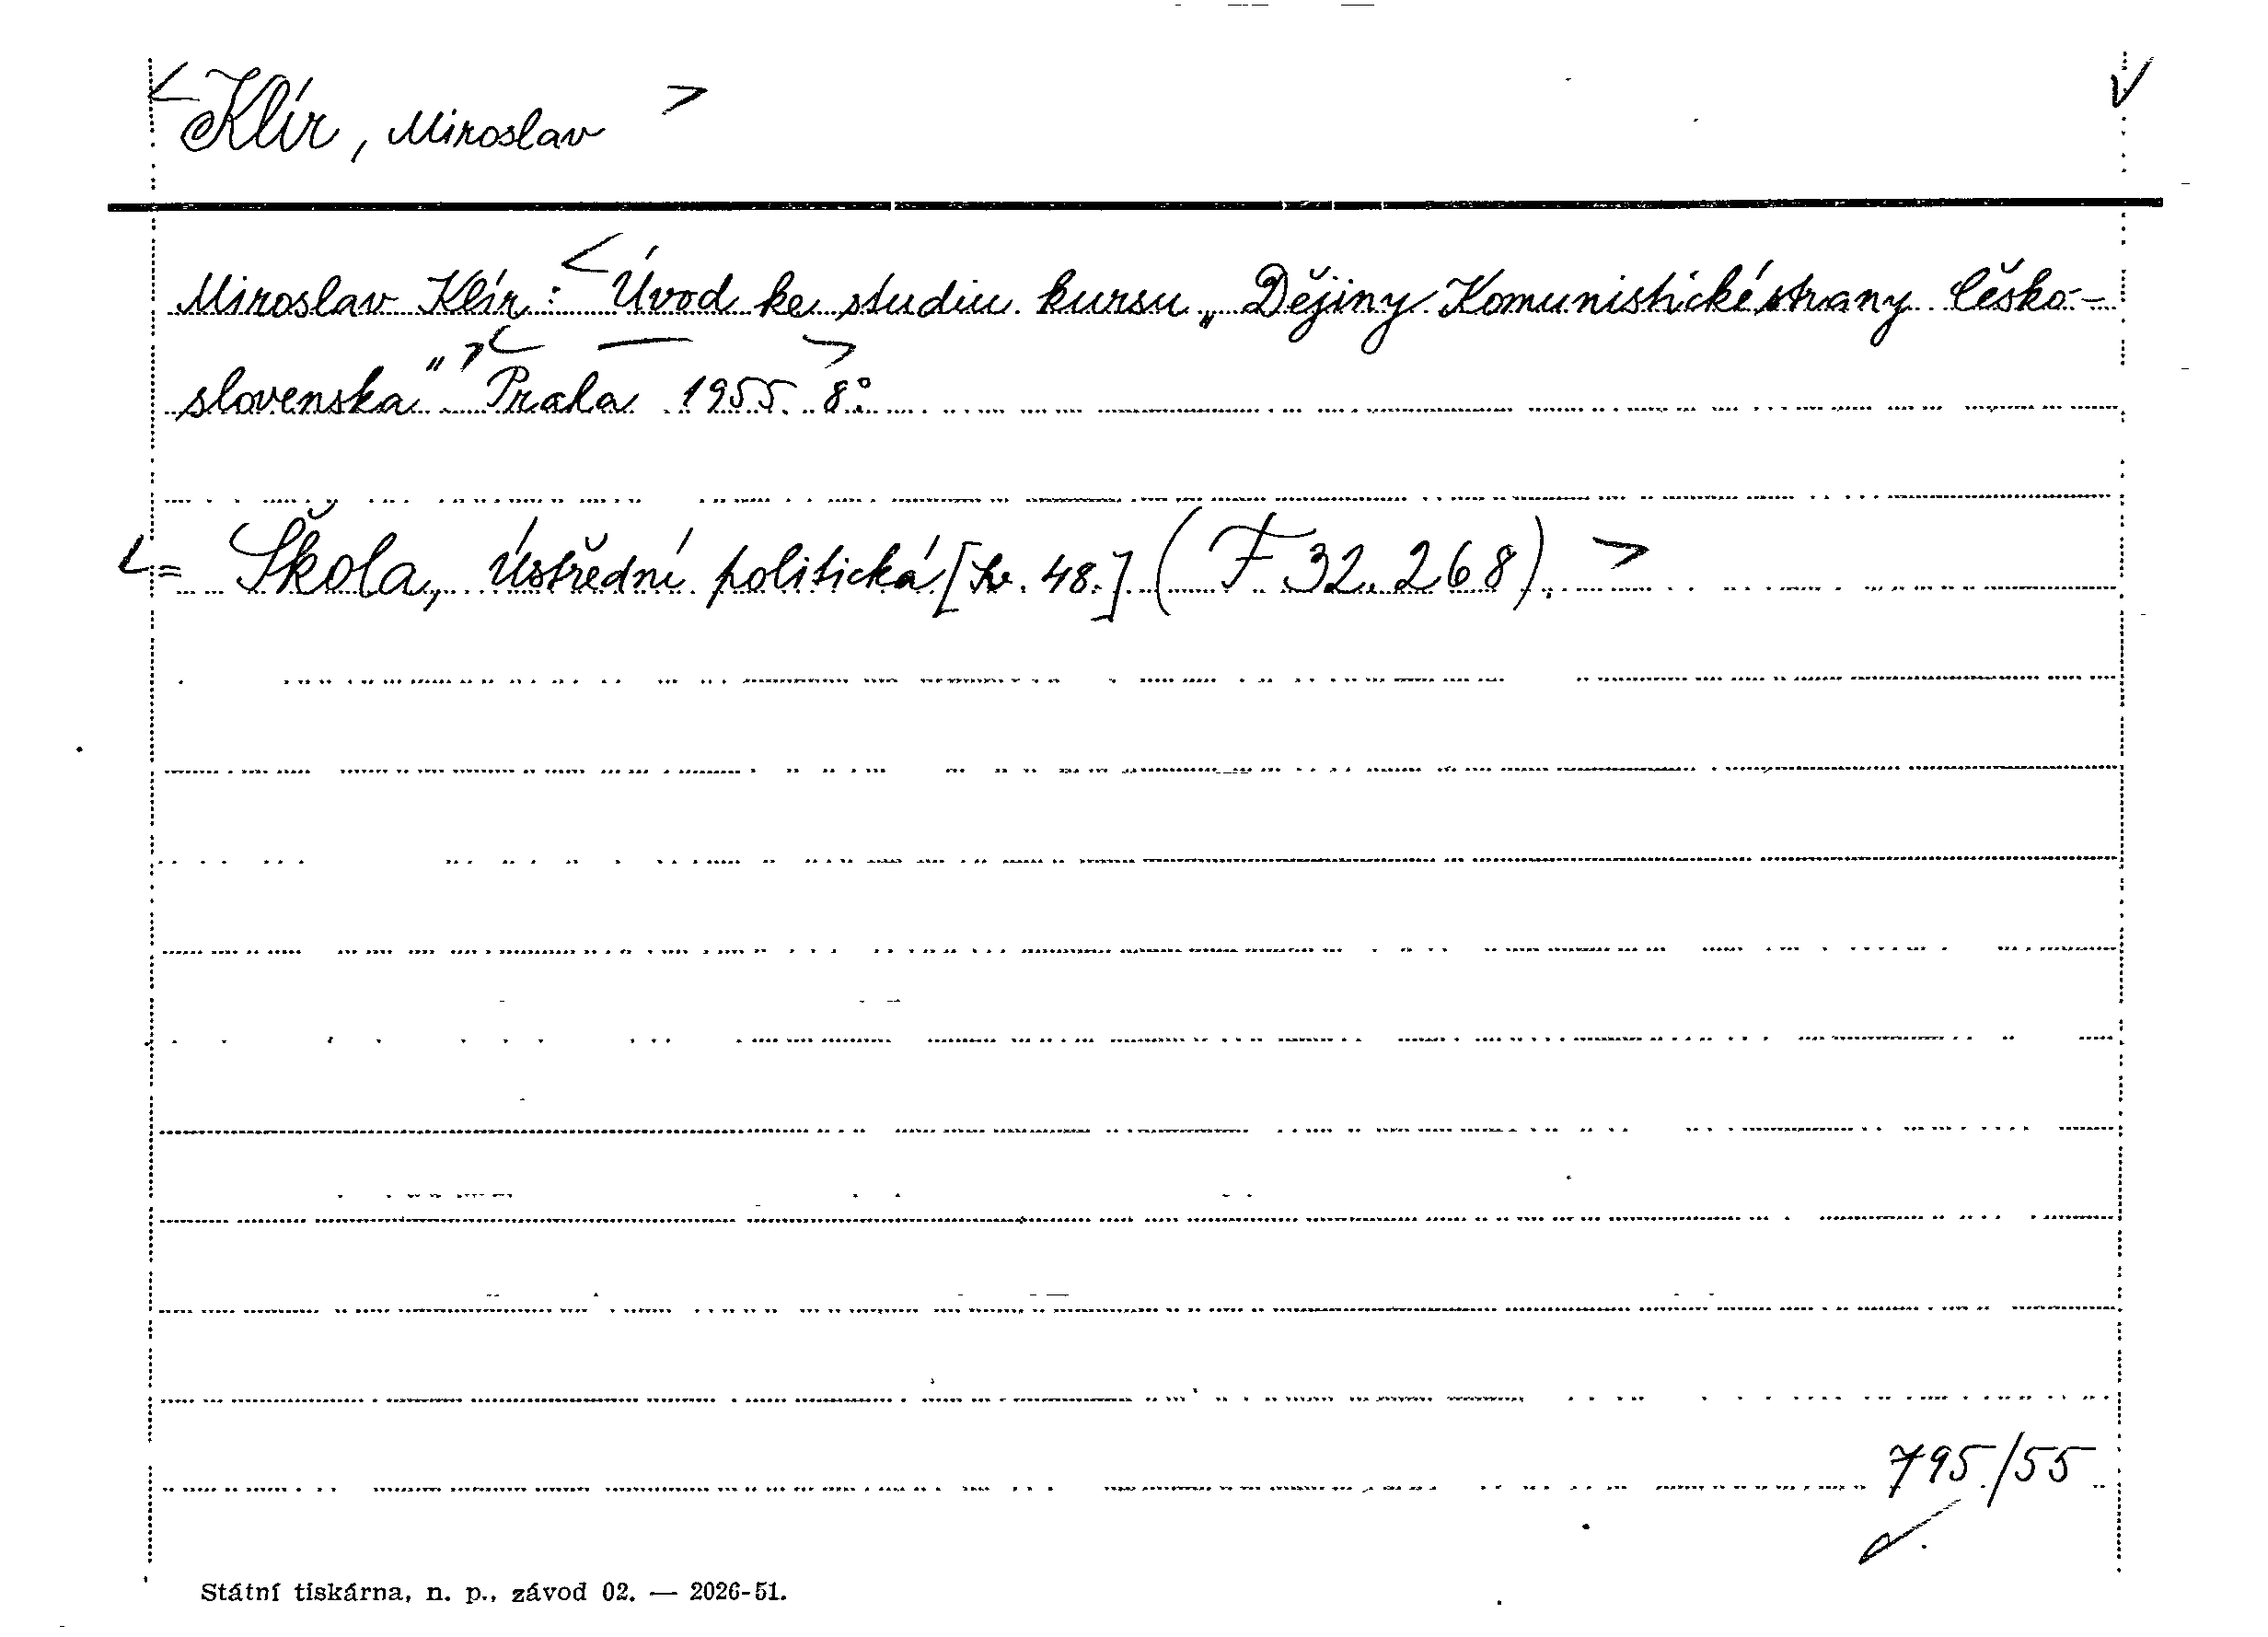 <Klír, Miroslav>
Miroslav Klír: <Úvod ke studiu kursu „Dějiny Komunistické strany Česko-
slovenska“> <Praha 1955. 8°>
<= Škola, Ústřední politická [Sv. 48.] (F 32.268).>
795/55
Státní tiskárna, n. p., závod 02. — 2026-51.